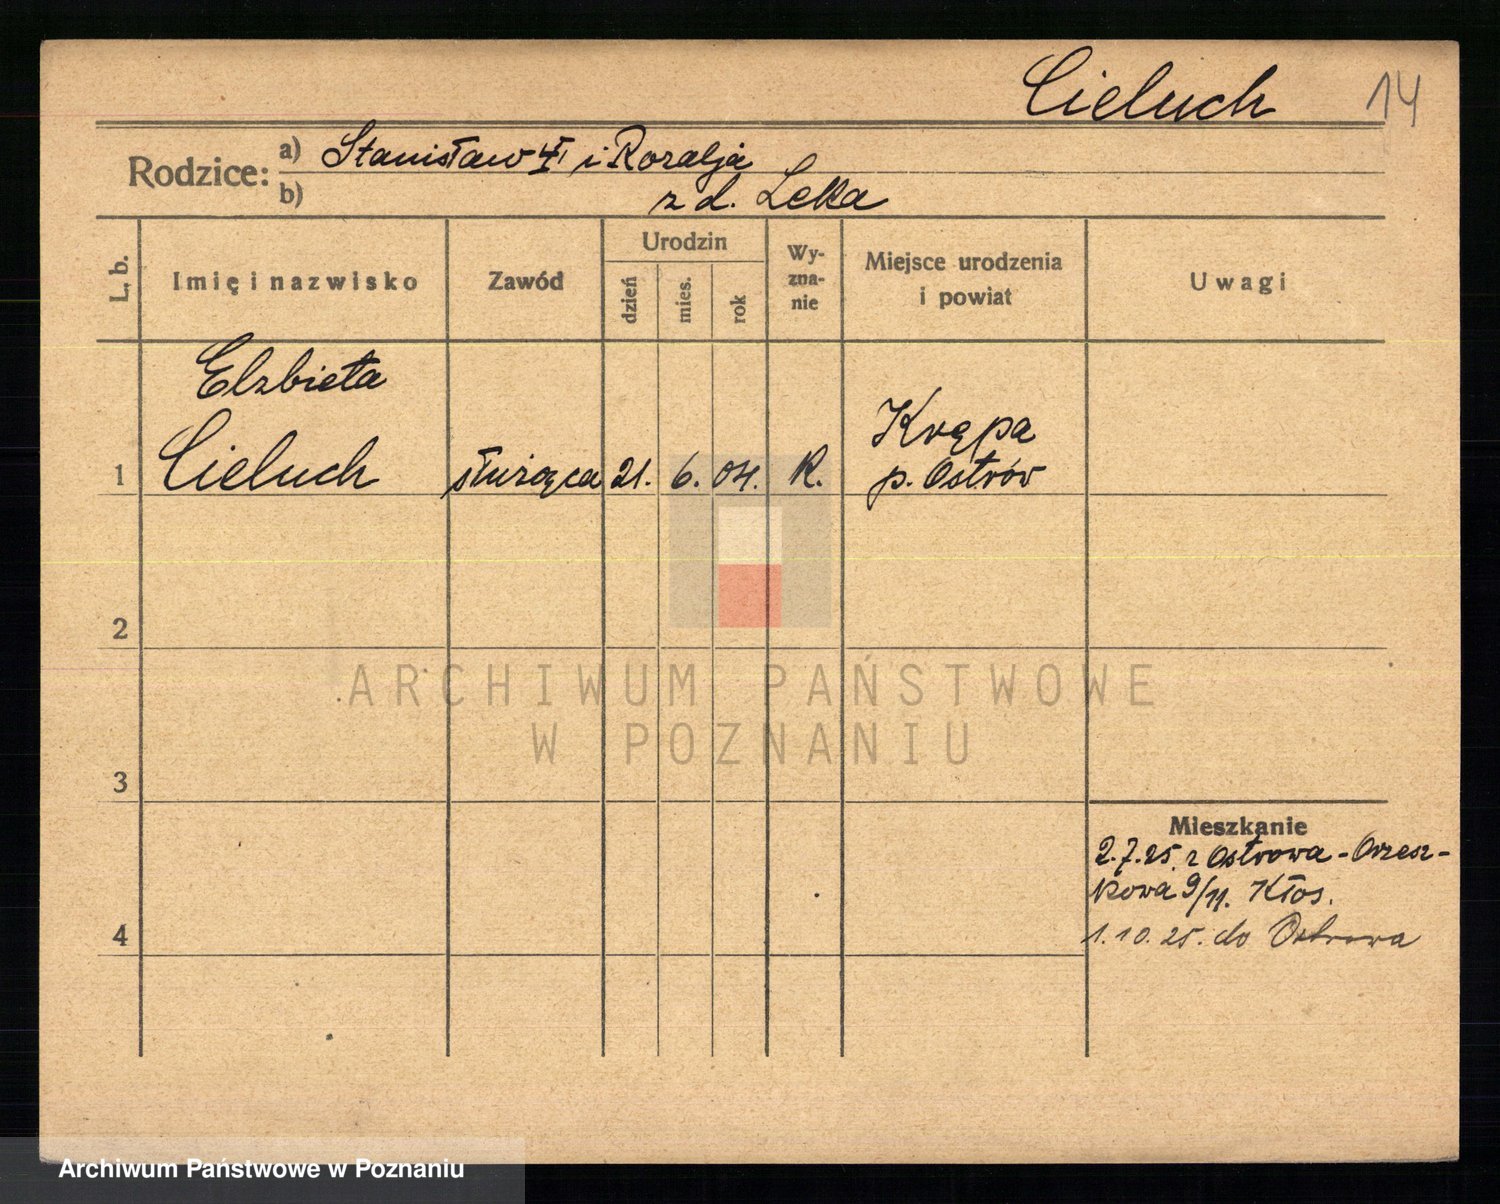 Cieluch 14
Rodzice: a) Stanisław i Rozalja
b) z d. Leka
L. b.
Imię i nazwisko
Zawód
Urodzin
dzień
mies.
rok
Wy-
zna-
nie
Miejsce urodzenia
i powiat
Uwagi
Elzbieta
Krępa
1 Cieluch służąca 21. 6. 04. R. p. Ostrów
2
ARCHIWUM PAŃSTWOWE
W POZNANIU
3
Mieszkanie
2.7.25. z Ostrowa - Orzesz-
kowa 9/11. Kłos.
4 1.10.25. do Ostrowa
Archiwum Państwowe w Poznaniu